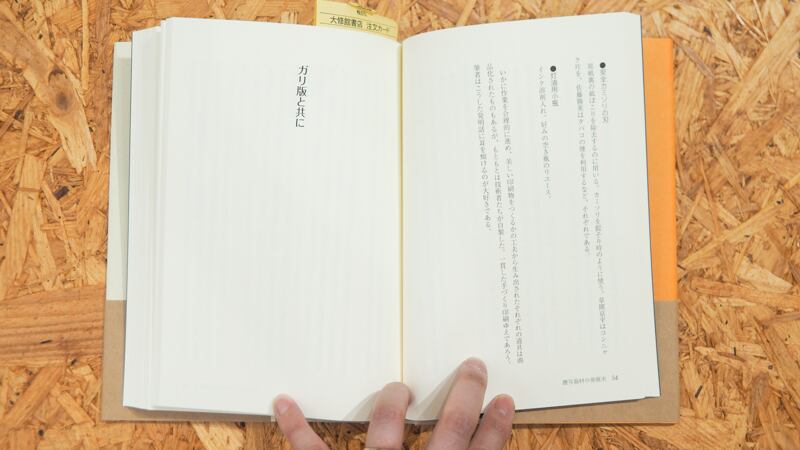 大修館書店 注文カード
●安全カミソリの刃
原紙裏の紙ぼこりを除去するのに用いる。カーソリを髭そり時のように使う。草間京平はコンニャ
ク片を、佐藤勝英はタバコの煙を利用するなど、それぞれである。
●灯油用小瓶
インク溶剤入れ。好みの空き瓶のリユース。
いかに作業を合理的に進め、美しい印刷物をつくるかの工夫から生み出されたそれぞれの道具は商
品化されたものもあるが、もともとは技術者たちが自製した。一貫した手づくり印刷ゆえであろう。
筆者はこうした発明話に耳を傾けるのが大好きである。
謄写器材の発展史 54
ガリ版と共に